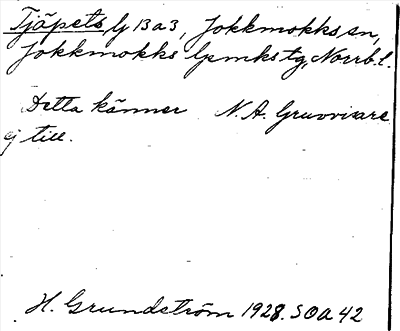 Tjäpets, lj 13 a 3, Jokkmokks sn,
Jokkmokks lpmks tg, Norrb. l.
Detta känner N. A. Gruvvisare
ej till.
H. Grundström 1928. SOA 42